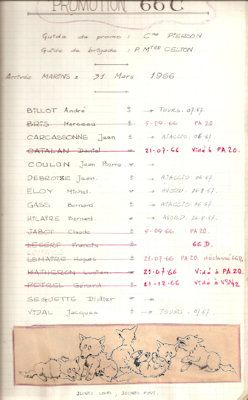 PROMOTION 66C
Guide de promo : Cne PIERSON
Guide de brigade : P. Mtre CELTON
Arrivée MARONS : 31 Mars 1966
BILLOT André → TOURS. 07.67
BRIS Marceau 5-09-66 PA 20
CARCASSONNE Jean → AJACCIO. 06-67
CATALAN Daniel 21-07-66 Viré à PA 20.
COULON Jean Pierre
DEBROISE Jean → AJACCIO
ELOY Michel → AVORD
GASS Bernard → AJACCIO
HILAIRE Bernard → AVORD
JABOT Claude 5-09-66 PA 20.
LEGERF Francis 66.D.
LEMAITRE Hugues 21-07-66 PA 20. déclassé 66D
MATHERON 29-07-66 Viré à PA 20.
POTREL Gérard 21-12-66 Viré à
SEGUETTE Didier
VIDAL Jacques → TOURS. 07.67
JEUNES LOUPS, JEUNES FOUS.